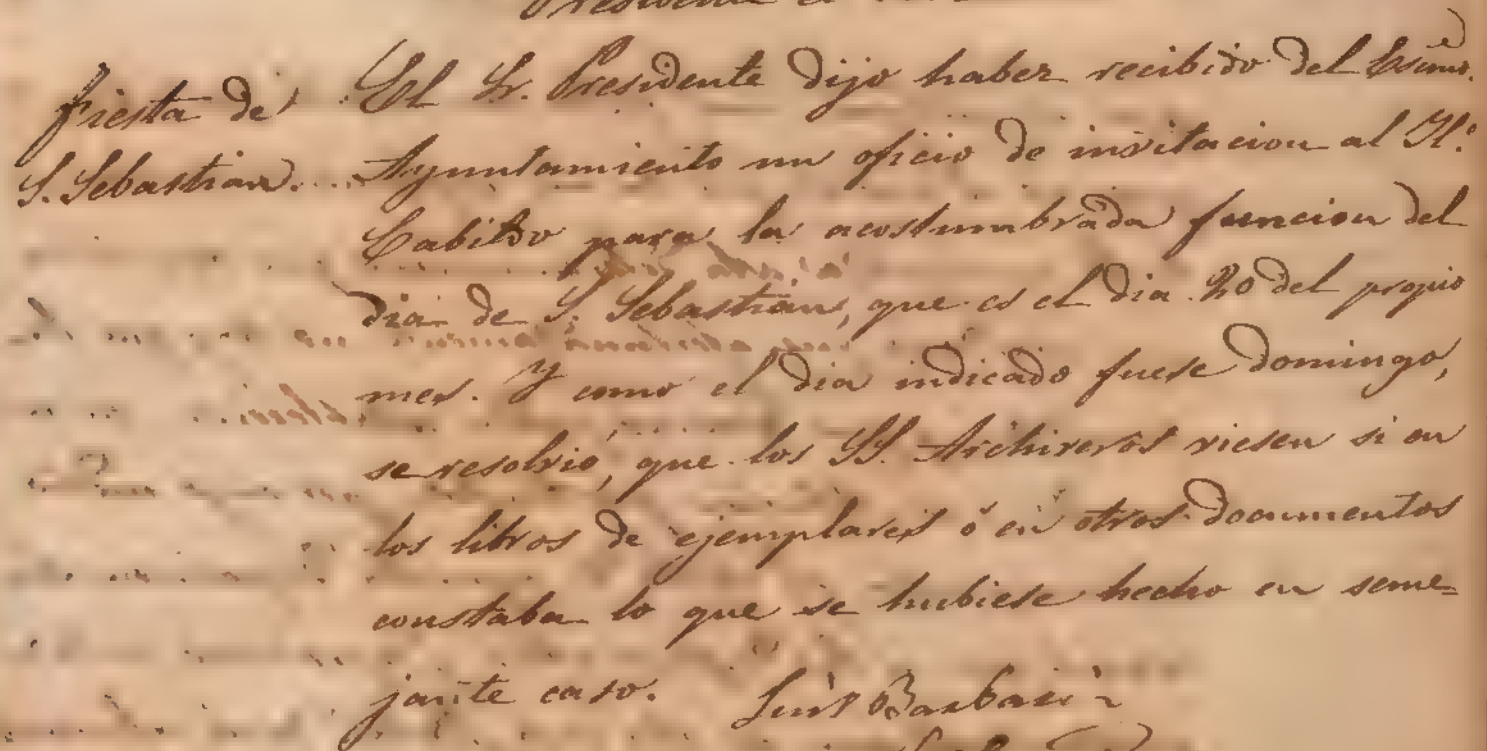 Presidente el
fiesta de
S. Sebastian....
El Sr. Presidente dijo haber recibido del Exmo.
Ayuntamiento un oficio de invitacion al Il.e
Cabildo para la acostumbrada funcion del
dia de S. Sebastian, que es el dia 20 del propio
mes. Y como el dia indicado fuese domingo,
se resolvió, que los SS. Archiveros viesen si en
los libros de ejemplares ó en otros documentos
constaba lo que se hubiese hecho en seme-
jante caso. Luis Barbarin